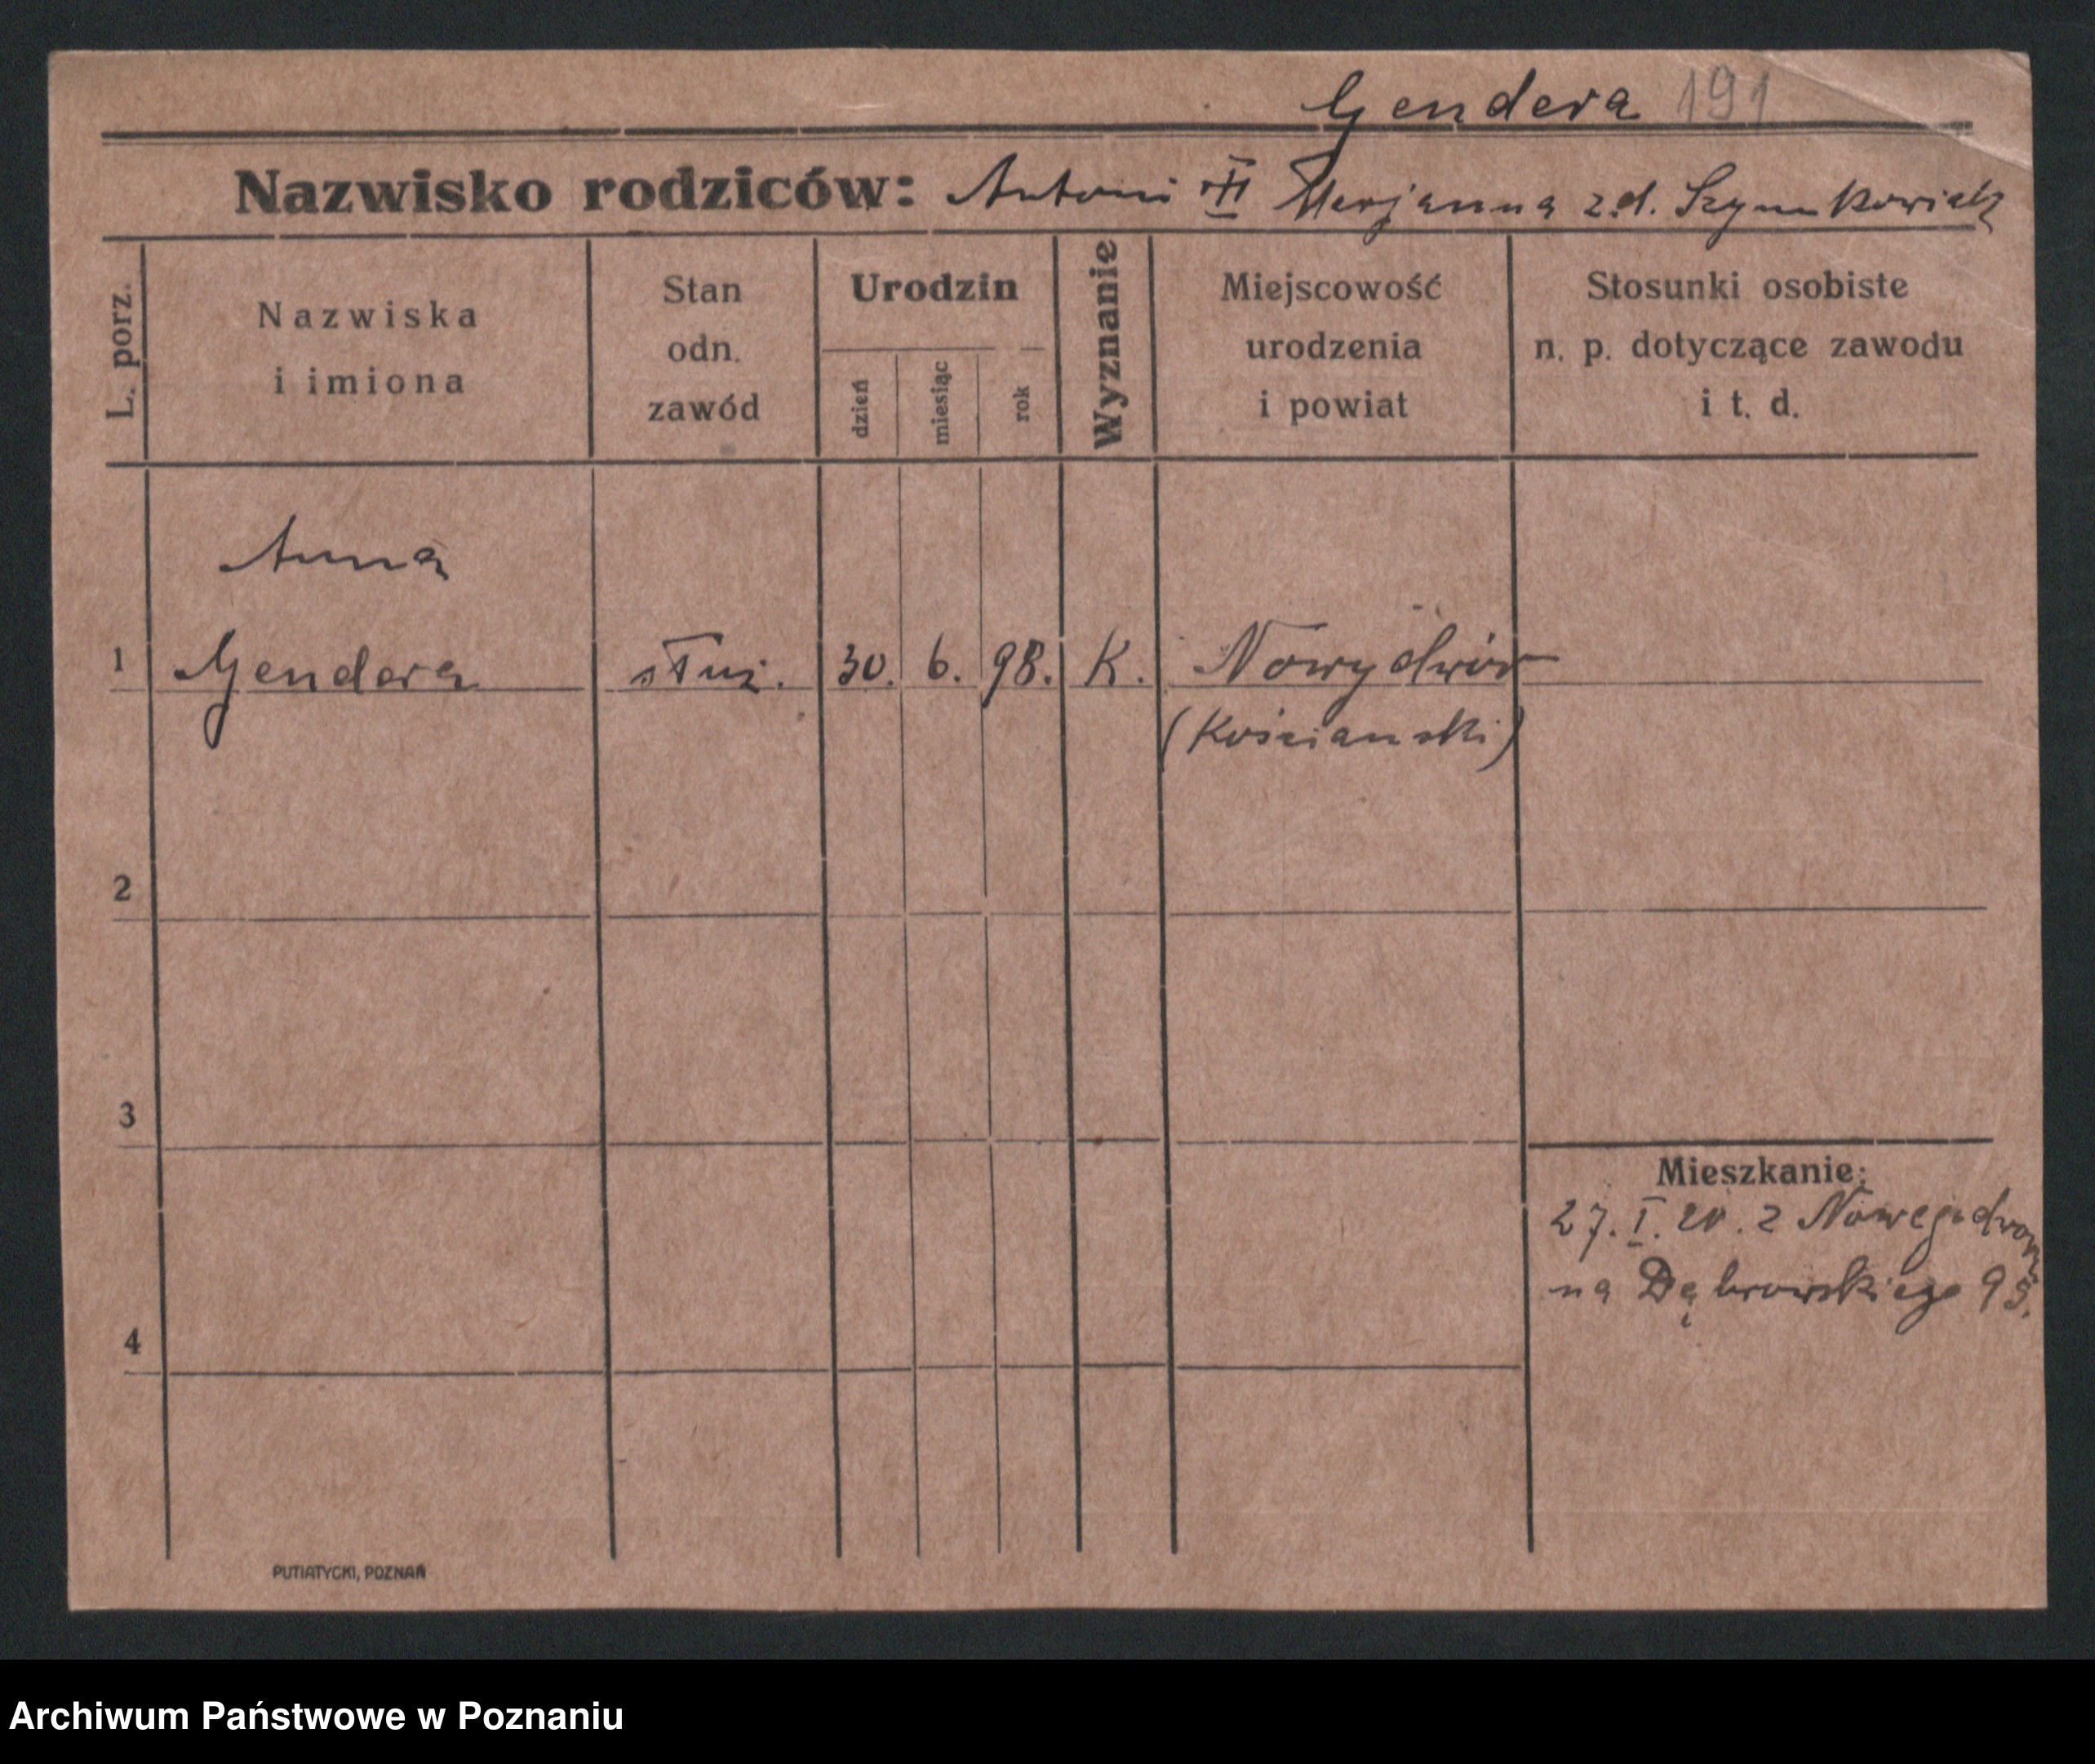 Gendera 191
Nazwisko rodziców: Antoni Marjanna z.d. Szymkowiak
L. porz.
Nazwiska
i imiona
Stan
odn.
zawód
Urodzin
dzień
miesiąc
rok
Wyznanie
Miejscowość
urodzenia
i powiat
Stosunki osobiste
n. p. dotyczące zawodu
i t. d.
Anna
1 Gendera służ. 30. 6. 98. K. Nowydwór
(Kościański)
2
3
Mieszkanie:
27. I. 20. z Nowegodworu
na Dąbrowskiego 93.
4
PUTIATYCKI, POZNAŃ
Archiwum Państwowe w Poznaniu